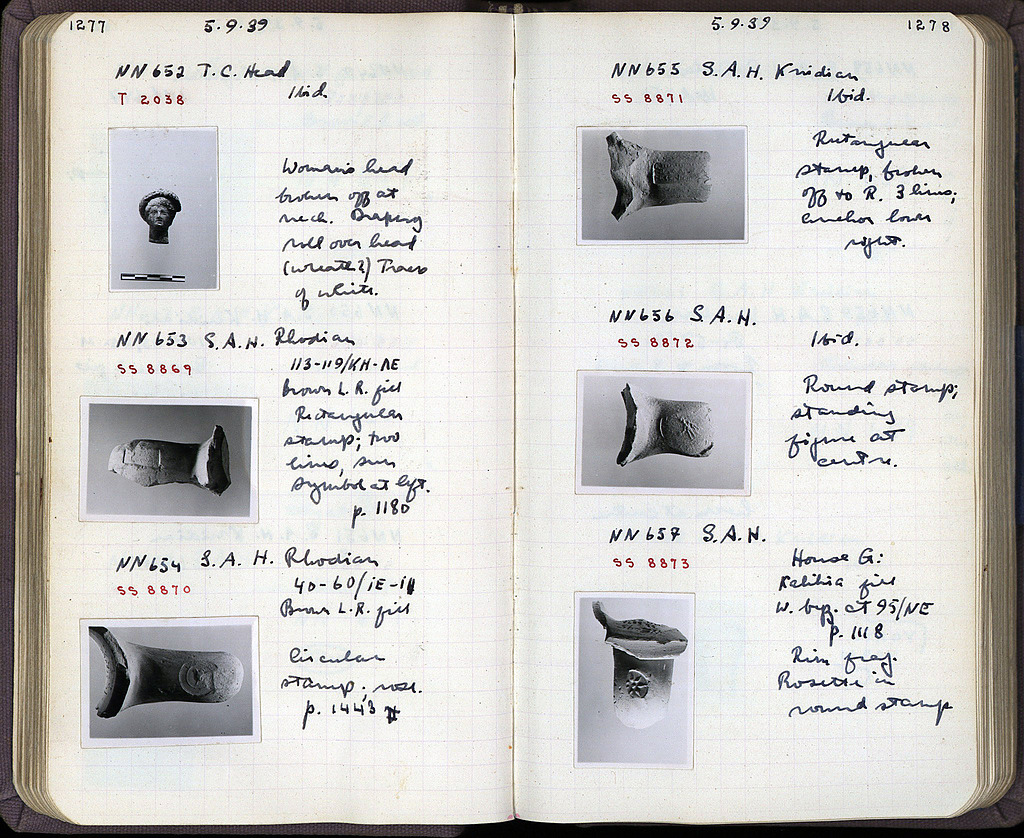 1277
5.9.39
NN 652 T.C. Head
T 2038
Ibid.
Woman's head
broken off at
neck. Drapery
roll over head
(wreath?) Traces
of white.
NN 653 S.A.H. Rhodian
SS 8869
113-119/KH-ΛE
Brown L.R. fill
Rectangular
stamp; two
lines, sun
symbol at left.
p. 1180
NN 654 S.A.H. Rhodian
SS 8870
40-60/
Brown L.R. fill
Circular
stamp; rose.
p. 1443
5.9.39
1278
NN 655 S.A.H. Knidian
SS 8871
Ibid.
Rectangular
stamp, broken
off to R. 3 lines;
anchor lower
right.
NN 656 S.A.H.
SS 8872
Ibid.
Round stamp;
standing
figure at
centre.
NN 657 S.A.H.
SS 8873
House G:
fill
W. byz. at 95/NE
p. 1118
Rim frag.
Rosette in
round stamp